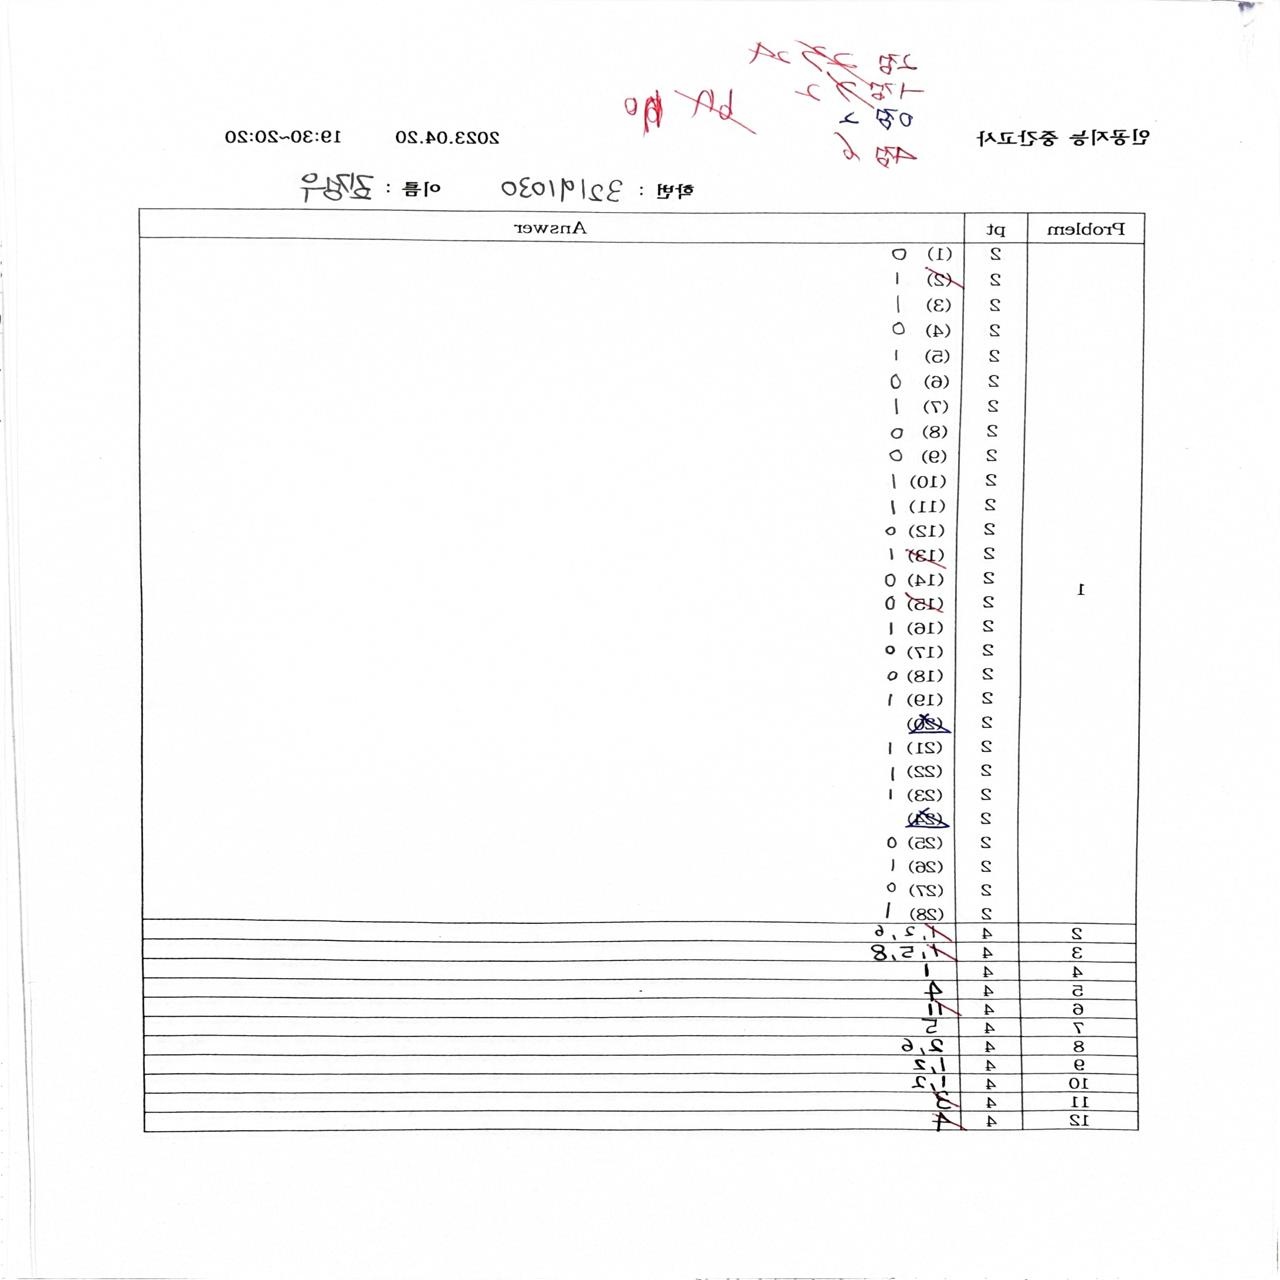 인공지능 중간고사 2023.04.20 19:30~20:20
학번 : 32191030 이름 :
Problem pt Answer
1
2 (1) 0
2 (2) 1
2 (3) 1
2 (4) 0
2 (5) 1
2 (6) 0
2 (7) 1
2 (8) 0
2 (9) 0
2 (10) 1
2 (11) 1
2 (12) 0
2 (13) 1
2 (14) 0
2 (15) 0
2 (16) 1
2 (17) 0
2 (18) 0
2 (19) 1
2 (20)
2 (21) 1
2 (22) 1
2 (23) 1
2 (24)
2 (25) 0
2 (26) 1
2 (27) 0
2 (28) 1
2 4 1, 2, 6
3 4 1, 5, 8
4 4 1
5 4 4
6 4
7 4 5
8 4 2, 6
9 4 1, 2
10 4 1, 2
11 4 3
12 4 4